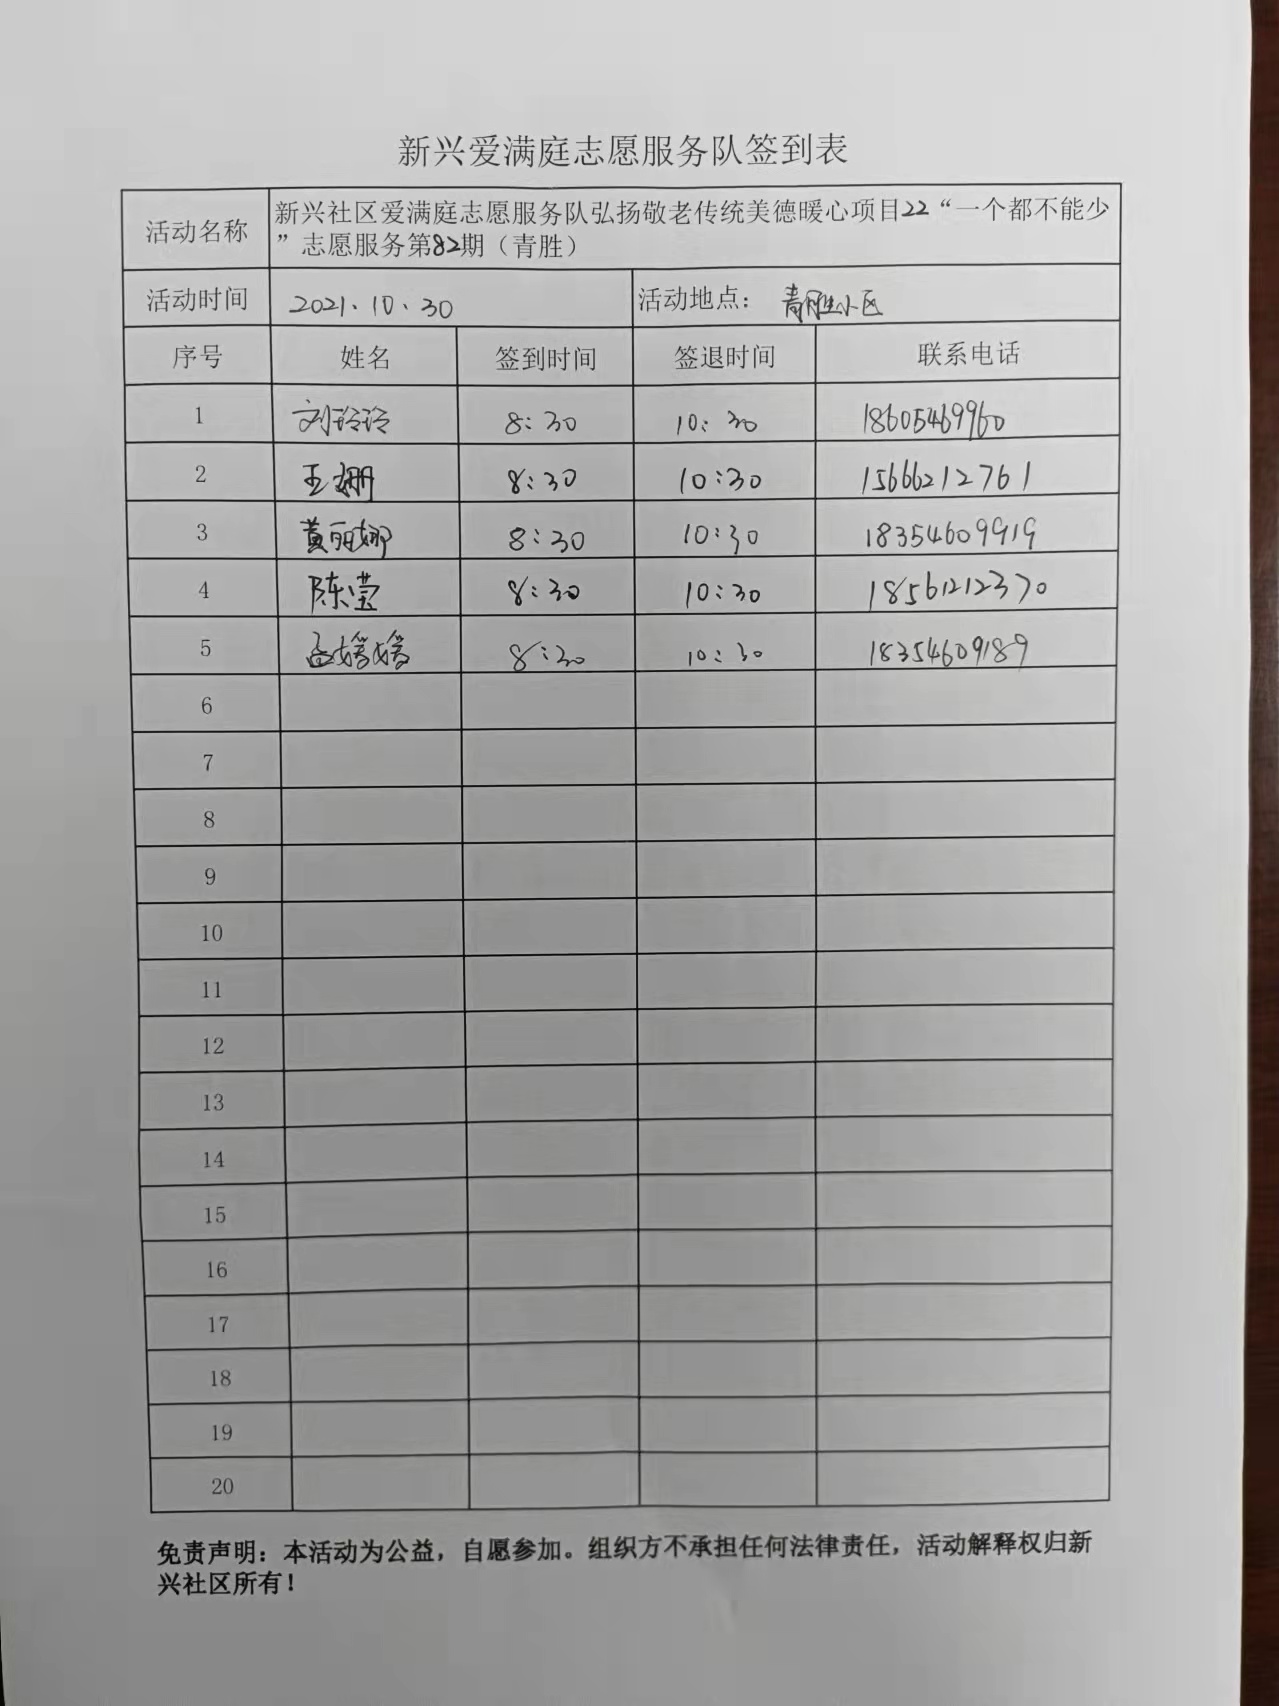 新兴爱满庭志愿服务队签到表
活动名称 新兴社区爱满庭志愿服务队弘扬敬老传统美德暖心项目22“一个都不能少
”志愿服务第82期（青胜）
活动时间 2021、10、30 活动地点： 青胜小区
序号 姓名 签到时间 签退时间 联系电话
1 刘玲玲 8:30 10:30 18605469960
2 王姗 8:30 10:30 15666212761
3 黄丽娜 8:30 10:30 18354609919
4 陈莹 8:30 10:30 18561212370
5 孟媛媛 8:30 10:30 18354609189
6
7
8
9
10
11
12
13
14
15
16
17
18
19
20
免责声明：本活动为公益，自愿参加。组织方不承担任何法律责任，活动解释权归新
兴社区所有！